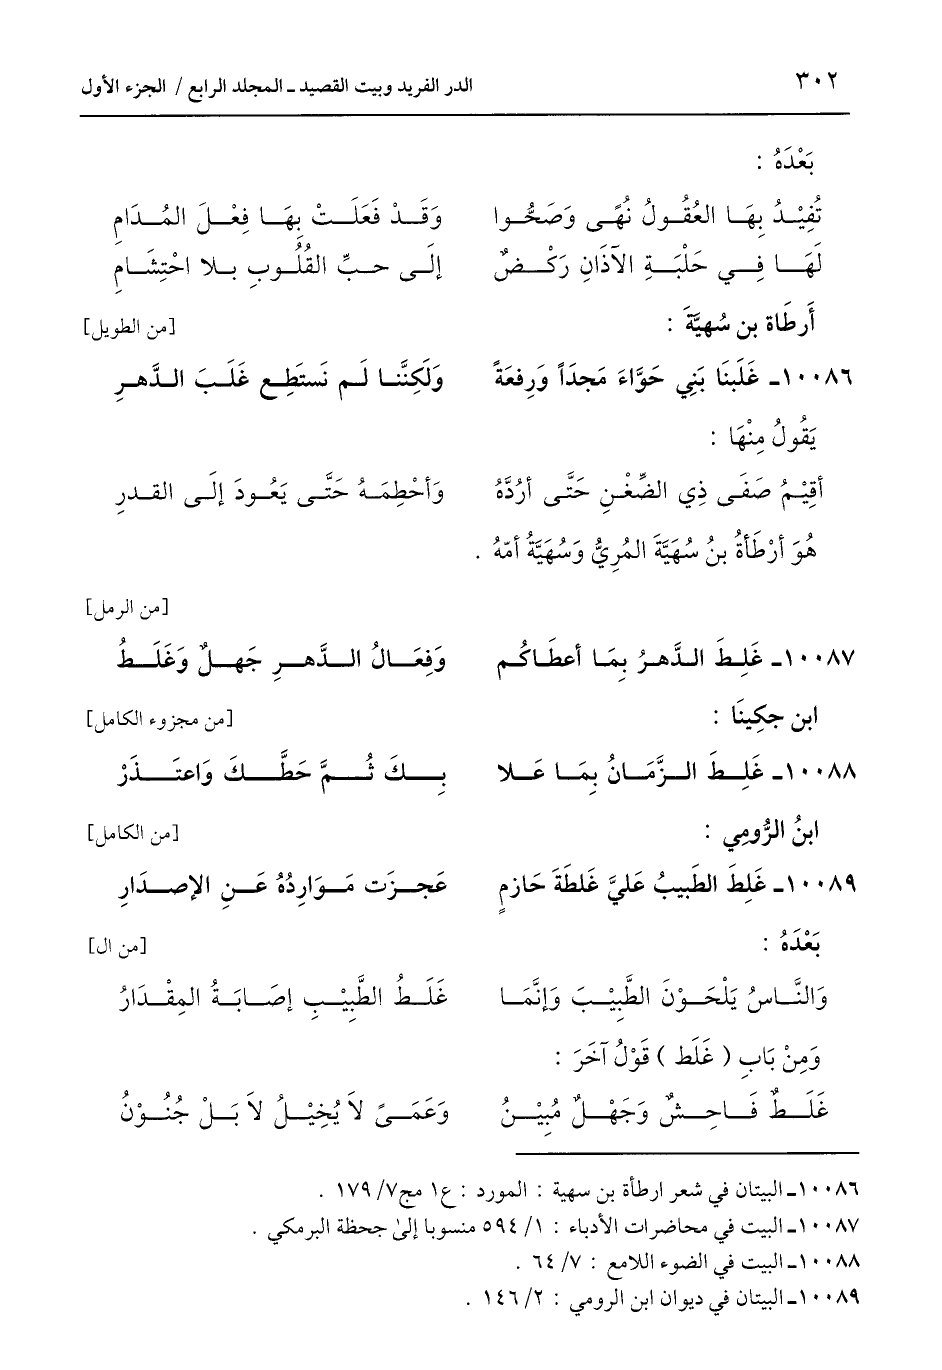 ٣٠٢ الدر الفريد وبيت القصيد ـ المجلد الرابع / الجزء الأول
بَعْدَهُ :
تُفِيْدُ بِهَا العُقُولُ نُهًى وَصَحُّوا وَقَدْ فَعَلَتْ بِهَا فِعْلَ المُدَامِ
لَهَا فِي حَلْبَةِ الآذَانِ رَكْضٌ إِلَى حبِّ القُلُوبِ بِلا احْتِشَامِ
أَرطَاة بن سُهيَّةَ : [من الطويل]
١٠٠٨٦ـ غَلَبنَا بَنِي حَوَّاءَ مَجدَاً وَرِفعَةً وَلَكِنَّنا لَم نَستَطِع غَلَبَ الدَّهرِ
يَقُولُ مِنْهَا :
أقِيْمُ صَفَى ذِي الضِّغْنِ حَتَّى أرُدَّهُ وَأحْطِمَهُ حَتَّى يَعُودَ إِلَى القدرِ
هُوَ أرْطَأةُ بنُ سُهَيَّةَ المُرِيُّ وَسُهَيَّةُ أمّهُ .
[من الرمل]
١٠٠٨٧ـ غَلِطَ الدَّهرُ بِمَا أعطَاكُم وَفِعَالُ الدَّهرِ جَهلٌ وَغَلَطُ
ابن جكِينَا : [من مجزوء الكامل]
١٠٠٨٨ـ غَلِطَ الزَّمَانُ بِمَا عَلا بِكَ ثُمَّ حَطَّكَ وَاعتَذَرْ
ابنُ الرُّومِي : [من الكامل]
١٠٠٨٩ـ غَلِطَ الطَبِيبُ عَليَّ غَلطَةَ حَازمٍ عَجزَت مَوَاردُهُ عَنِ الإصدَارِ
بَعْدَهُ : [من ال]
وَالنَّاسُ يَلْحَوْنَ الطَّبِيْبَ وَإِنَّمَا غَلَطُ الطَّبِيْبِ إصَابَةُ المِقْدَارُ
وَمِنْ بَابِ ( غَلَط ) قَوْلُ آخَرَ :
غَلَطٌ فَاحِشٌ وَجَهْلٌ مُبِيْنُ وَعَمَىً لاَ يُخِيْلُ لاَ بَلْ جُنُوْنُ
١٠٠٨٦ـ البيتان في شعر ارطأة بن سهية : المورد : ع١ مج٧/ ١٧٩ .
١٠٠٨٧ـ البيت في محاضرات الأدباء : ١/ ٥٩٤ منسوبا إلىٰ جحظة البرمكي .
١٠٠٨٨ـ البيت في الضوء اللامع : ٧/ ٦٤ .
١٠٠٨٩ـ البيتان في ديوان ابن الرومي : ٢/ ١٤٦ .